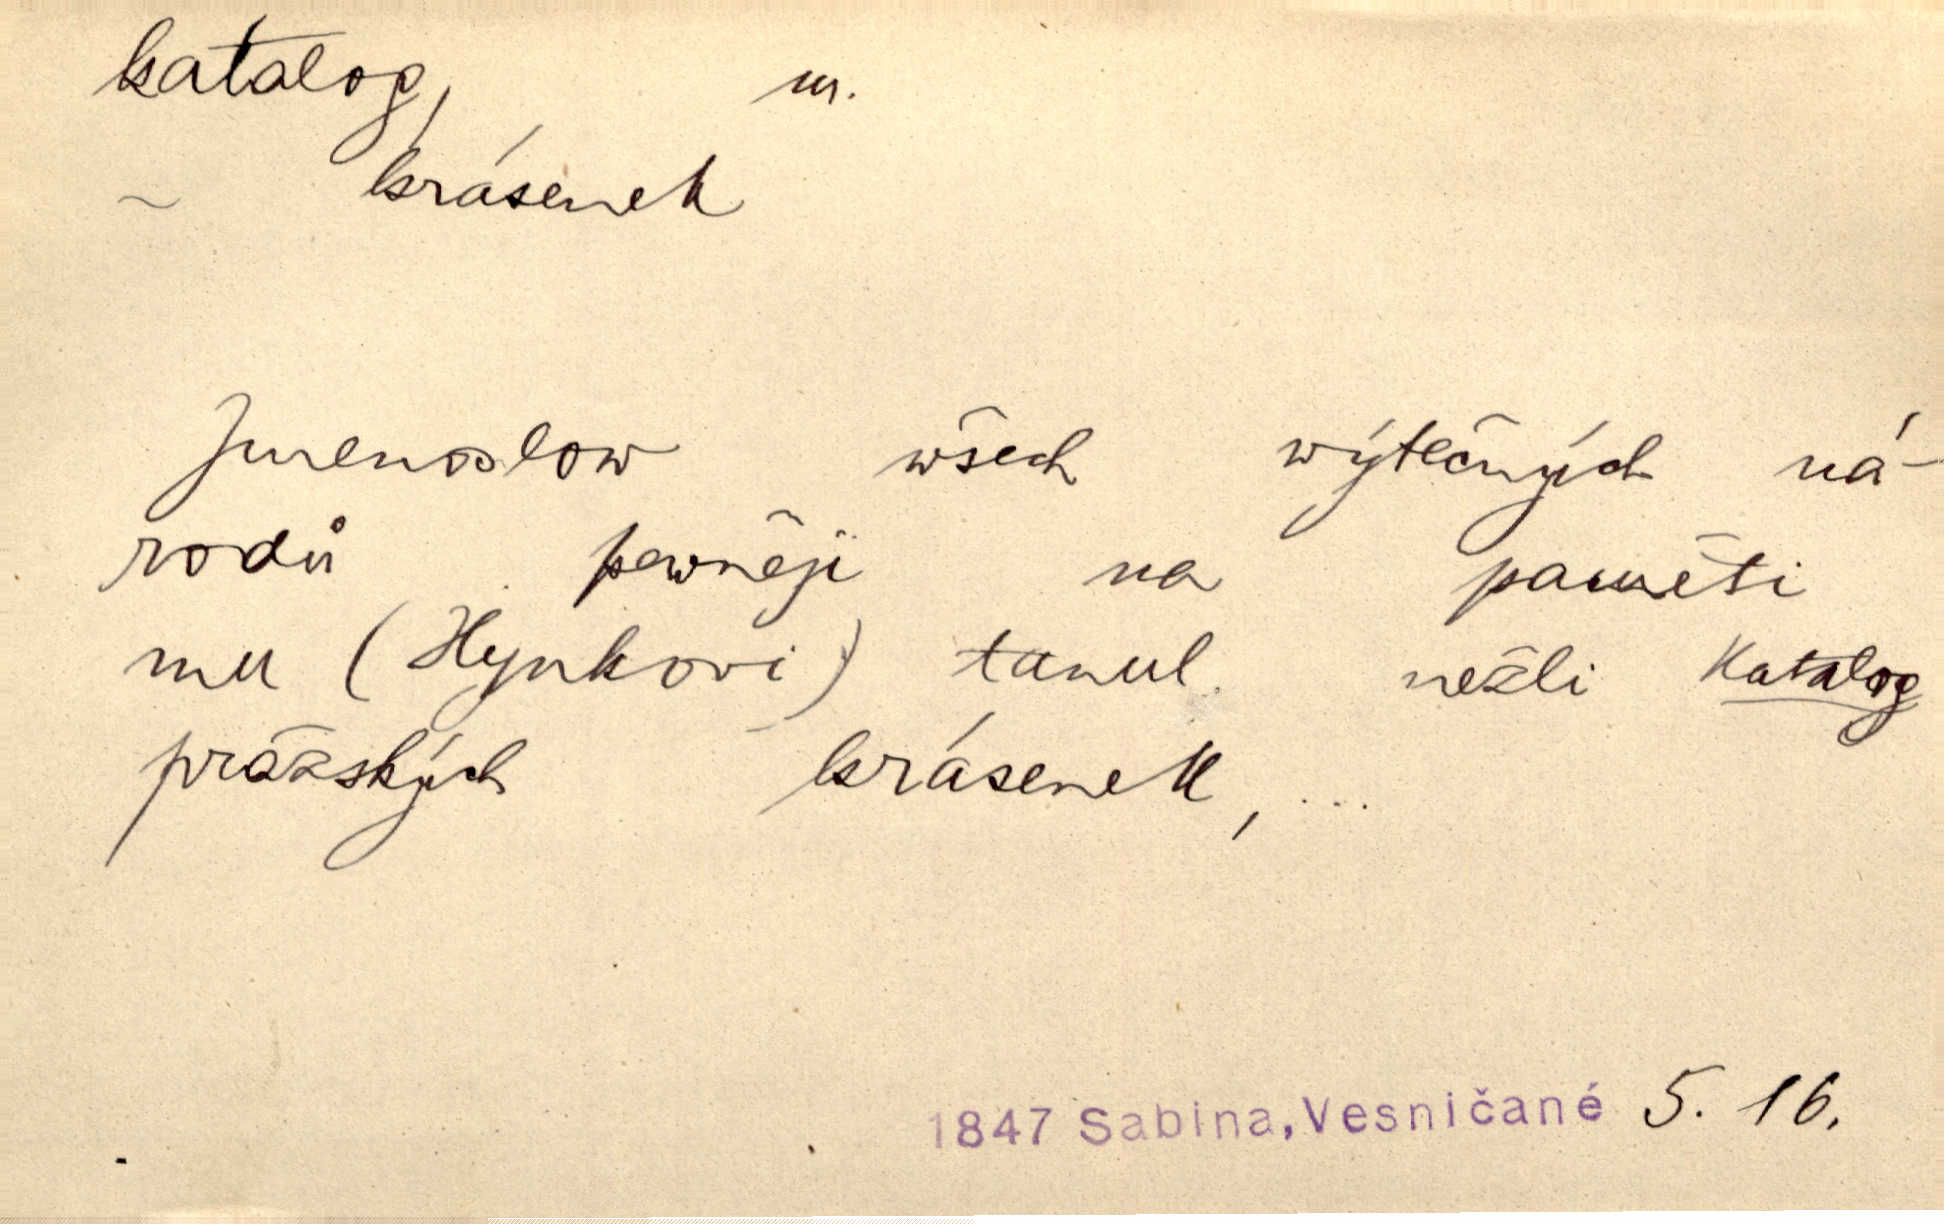 katalog, m.
~ krásenek
Jmenoslow wšech wýtečných ná-
rodů pewněji na paměti
mu (Hynkovi) tanul nežli Katalog
pražských krásenek, ...
1847 Sabina, Vesničané 5. 16.